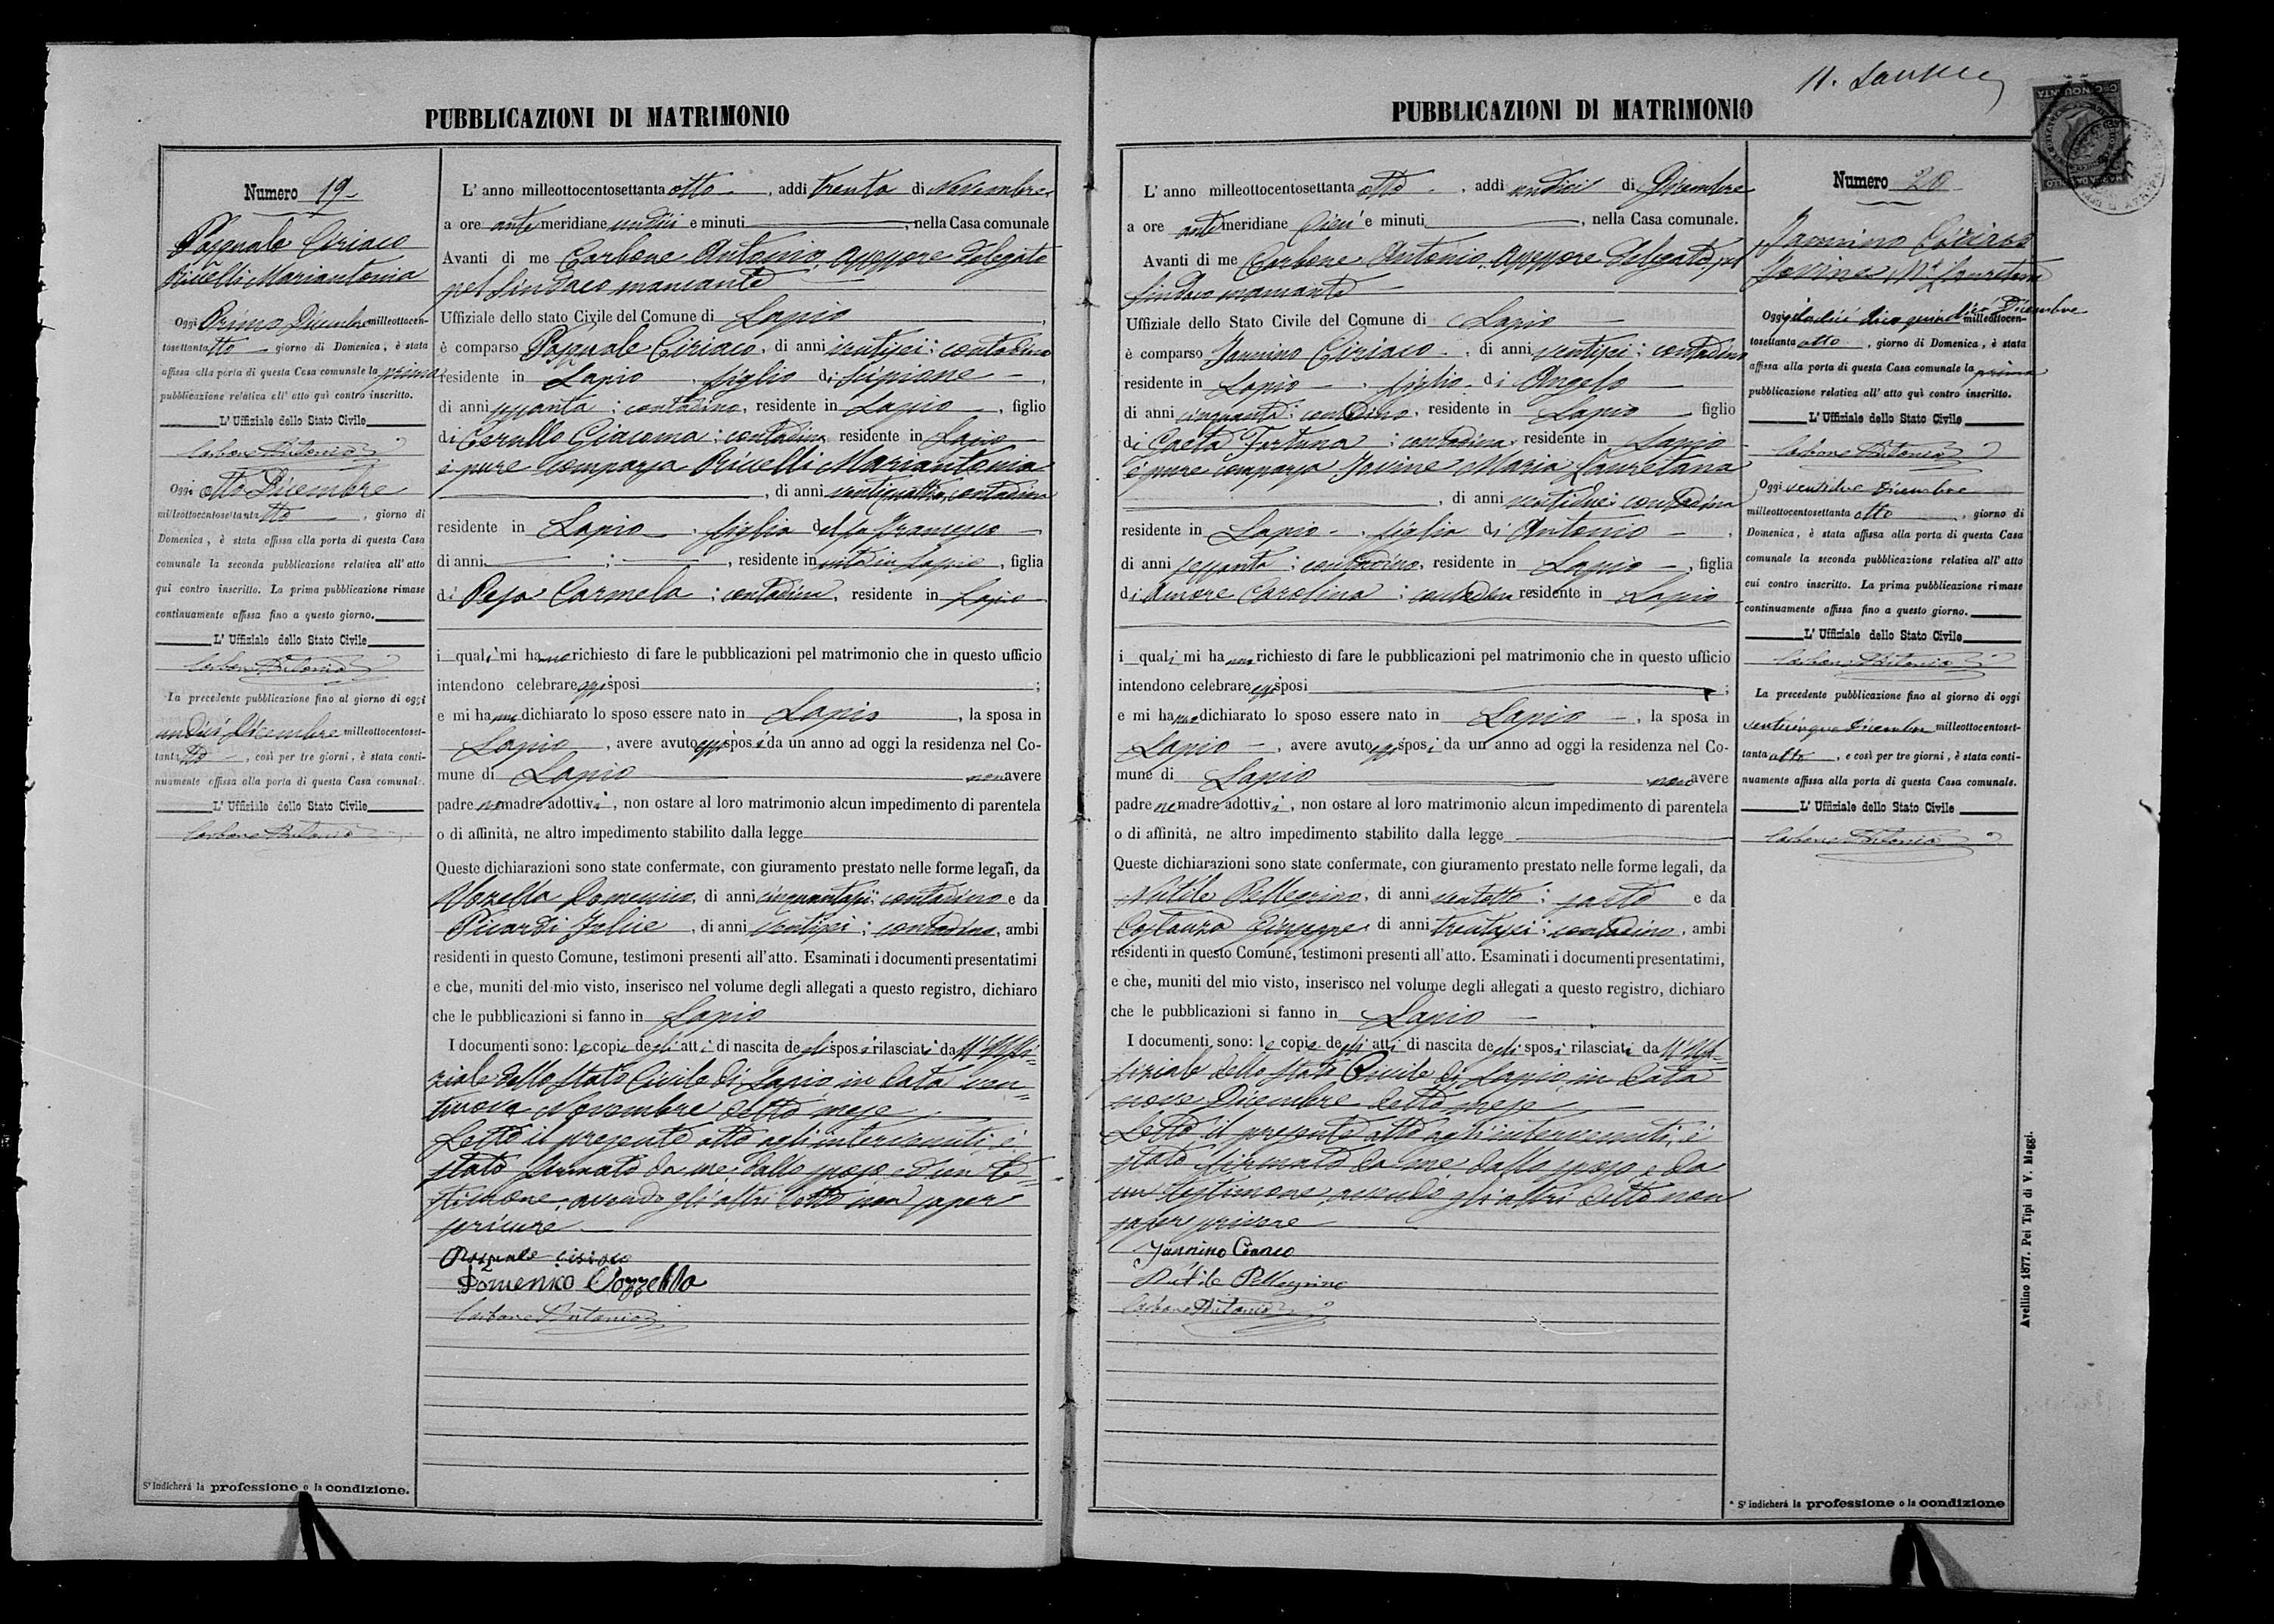 PUBBLICAZIONI DI MATRIMONIO
Numero 19
Pasquale Ciriaco
Rivelli Mariantonia
Oggi Primo Dicembre milleottocen-
tosettanta otto giorno di Domenica, è stata
affissa alla porta di questa Casa comunale la prima
pubblicazione relativa all' atto quì contro inscritto.
L' Uffiziale dello Stato Civile
Carbone Antonio
Oggi otto Dicembre
milleottocentosettanta otto, giorno di
Domenica, è stata affissa alla porta di questa Casa
comunale la seconda pubblicazione relativa all' atto
qui contro inscritto. La prima pubblicazione rimase
continuamente affissa fino a questo giorno.
L' Uffiziale dello Stato Civile
Carbone Antonio
La precedente pubblicazione fino al giorno di oggi
undici Dicembre milleottocentoset-
tanta otto, così per tre giorni, è stata conti-
nuamente affissa alla porta di questa Casa comunale.
L' Uffiziale dello Stato Civile
Carbone Antonio
S' indicherà la professione o la condizione.
L' anno milleottocentosettanta otto, addì trenta di Novembre
a ore ante meridiane undici e minuti, nella Casa comunale
Avanti di me Carbone Antonio, Assessore delegato
pel Sindaco mancante
Uffiziale dello stato Civile del Comune di Lapio
è comparso Pasquale Ciriaco, di anni ventisei; contadino
residente in Lapio, figlio di Scipione
di anni sessanta; contadino, residente in Lapio, figlio
di Cerullo Giacoma; contadina residente in Lapio
è pure comparsa Rivelli Mariantonia
, di anni ventiquattro, contadina
residente in Lapio, figlia del fu Francesco
di anni ; , residente in vita in Lapio, figlia
di Pesa Carmela; contadina, residente in Lapio
i quali mi hanno richiesto di fare le pubblicazioni pel matrimonio che in questo ufficio
intendono celebrare essi sposi ;
e mi hanno dichiarato lo sposo essere nato in Lapio, la sposa in
Lapio, avere avuto essi sposi da un anno ad oggi la residenza nel Co-
mune di Lapio non avere
padre ne madre adottivi, non ostare al loro matrimonio alcun impedimento di parentela
o di affinità, ne altro impedimento stabilito dalla legge
Queste dichiarazioni sono state confermate, con giuramento prestato nelle forme legali, da
Vozzella Domenico, di anni cinquantasei; contadino e da
Picardi Felice, di anni ventisei; contadino, ambi
residenti in questo Comune, testimoni presenti all'atto. Esaminati i documenti presentatimi
e che, muniti del mio visto, inserisco nel volume degli allegati a questo registro, dichiaro
che le pubblicazioni si fanno in Lapio
I documenti sono: le copie degli atti di nascita degli sposi rilasciati dall'Uffi-
ziale dello Stato Civile di Lapio in data ven-
tinove Novembre detto mese
Letto il presente atto agli intervenuti, è
stato firmato da me, dallo sposo e d'un te-
stimone, avendo gli altri detto non saper
scrivere
Pasquale Ciriaco
Domenico Vozzella
Carbone Antonio
PUBBLICAZIONI DI MATRIMONIO
L' anno milleottocentosettanta otto, addì undici di Dicembre
a ore ante meridiane dieci e minuti, nella Casa comunale.
Avanti di me Carbone Antonio, Assessore delegato, pel
Sindaco mancante
Uffiziale dello Stato Civile del Comune di Lapio
è comparso Jannino Ciriaco, di anni ventisei; contadino
residente in Lapio, figlio di Angelo
di anni cinquanta; contadino, residente in Lapio figlio
di Caeta Fortuna; contadina, residente in Lapio
è pure comparsa Jovine Maria Lauretana
, di anni ventidue; contadina
residente in Lapio, figlia di Antonio
di anni sessanta; contadino, residente in Lapio, figlia
di Amore Carolina; contadina residente in Lapio
i quali mi hanno richiesto di fare le pubblicazioni pel matrimonio che in questo ufficio
intendono celebrare essi sposi ;
e mi hanno dichiarato lo sposo essere nato in Lapio, la sposa in
Lapio, avere avuto essi sposi da un anno ad oggi la residenza nel Co-
mune di Lapio non avere
padre ne madre adottivi, non ostare al loro matrimonio alcun impedimento di parentela
o di affinità, ne altro impedimento stabilito dalla legge
Queste dichiarazioni sono state confermate, con giuramento prestato nelle forme legali, da
Nutile Pellegrino, di anni ventotto; sarto e da
Costanzo Giuseppe, di anni trentasei; contadino, ambi
residenti in questo Comune, testimoni presenti all'atto. Esaminati i documenti presentatimi,
e che, muniti del mio visto, inserisco nel volume degli allegati a questo registro, dichiaro
che le pubblicazioni si fanno in Lapio
I documenti sono: le copie degli atti di nascita degli sposi rilasciati dall'Uf-
fiziale dello Stato Civile di Lapio in data
nove Dicembre detto mese
Letto il presente atto agli intervenuti, è
stato firmato da me dallo sposo e da
un testimone, avendo gli altri detto non
sapere scrivere
Jannino Ciriaco
Nutile Pellegrino
Carbone Antonio
Numero 20
Jannino Ciriaco
Jovine Ma Lauretana
Oggi dodici dico quindici Dicembre milleottocen-
tosettanta otto, giorno di Domenica, è stata
affissa alla porta di questa Casa comunale la prima
pubblicazione relativa all' atto quì contro inscritto.
L' Uffiziale dello Stato Civile
Carbone Antonio
Oggi ventidue Dicembre
milleottocentosettanta otto, giorno di
Domenica, è stata affissa alla porta di questa Casa
comunale la seconda pubblicazione relativa all' atto
cui contro inscritto. La prima pubblicazione rimase
continuamente affissa fino a questo giorno.
L' Uffiziale dello Stato Civile
Carbone Antonio
La precedente pubblicazione fino al giorno di oggi
venticinque Dicembre milleottocentoset-
tanta otto, e così per tre giorni, è stata conti-
nuamente affissa alla porta di questa Casa comunale.
L' Uffiziale dello Stato Civile
Carbone Antonio
* S' indicherà la professione o la condizione
Avellino 1877. Pei Tipi di V. Maggi.